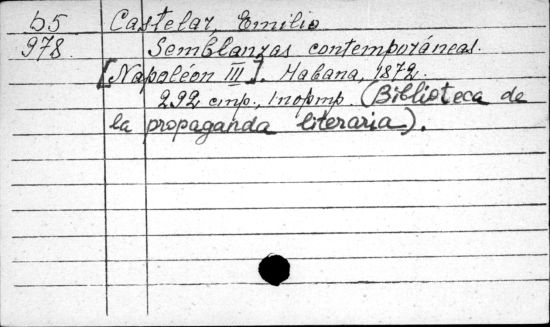 55 Castelar Emilio
978. Semblanzas contemporáneas.
[Napoléon III]. Habana, 1872.
292 стр., 1 портр. (Biblioteca de
la propaganda literaria).